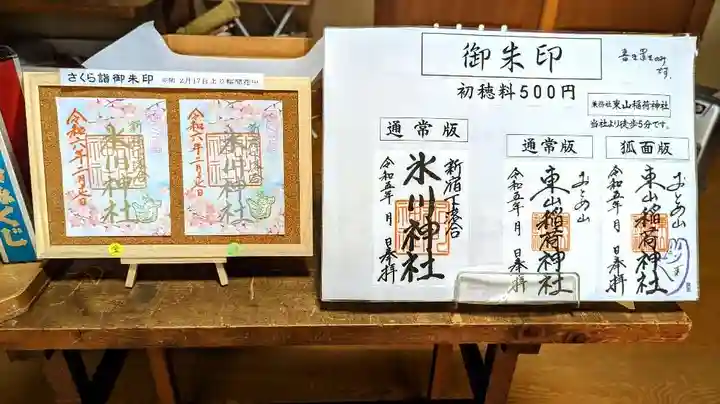 さくら詣御朱印
令和六年二月
氷川神社
令和六年二月
氷川神社
御朱印
初穂料500円
兼務社 東山稲荷神社
当社より徒歩5分です。
通常版
新宿下落合
氷川神社
令和五年 月 日奉拝
通常版
おとめ山
東山稲荷神社
令和五年 月 日奉拝
狐面版
おとめ山
東山稲荷神社
令和五年 月 日奉拝
みくじ